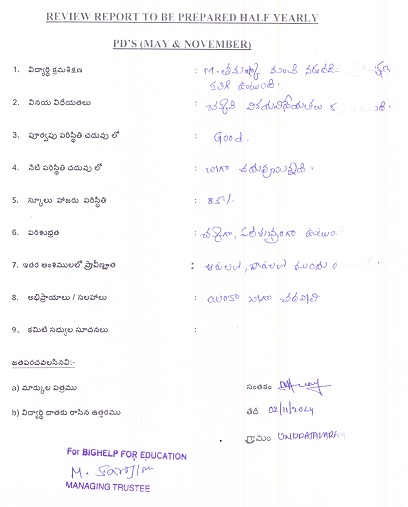 REVIEW REPORT TO BE PREPARED HALF YEARLY
PD'S (MAY & NOVEMBER)
1. విద్యార్థి క్రమశిక్షణ : M. మంచి
కలిగి ఉంటుంది.
2. వినయ విధేయతలు : చక్కటి వినయవిధేయతలు
3. పూర్వపు పరిస్థితి చదువు లో : Good.
4. నేటి పరిస్థితి చదువు లో : బాగా చదువుతున్నది.
5. స్కూలు హాజరు పరిస్థితి : 85%
6. పరిశుభ్రత : చక్కగా, పరిశుభ్రంగా
7. ఇతర అంశములలో ప్రావీణ్యత : ఆటలలో, పాటలలో ముందు
8. అభిప్రాయాలు / సలహాలు : ఇంకా బాగా చదవాలి
9. కమిటి సభ్యుల సూచనలు :
జతపరచవలసినవి:-
a) మార్కుల పత్రము సంతకం
b) విద్యార్థి దాతకు రాసిన ఉత్తరము తేది 02/11/2024
గ్రామం UNDRAJAVARAM
For BIGHELP FOR EDUCATION
MANAGING TRUSTEE